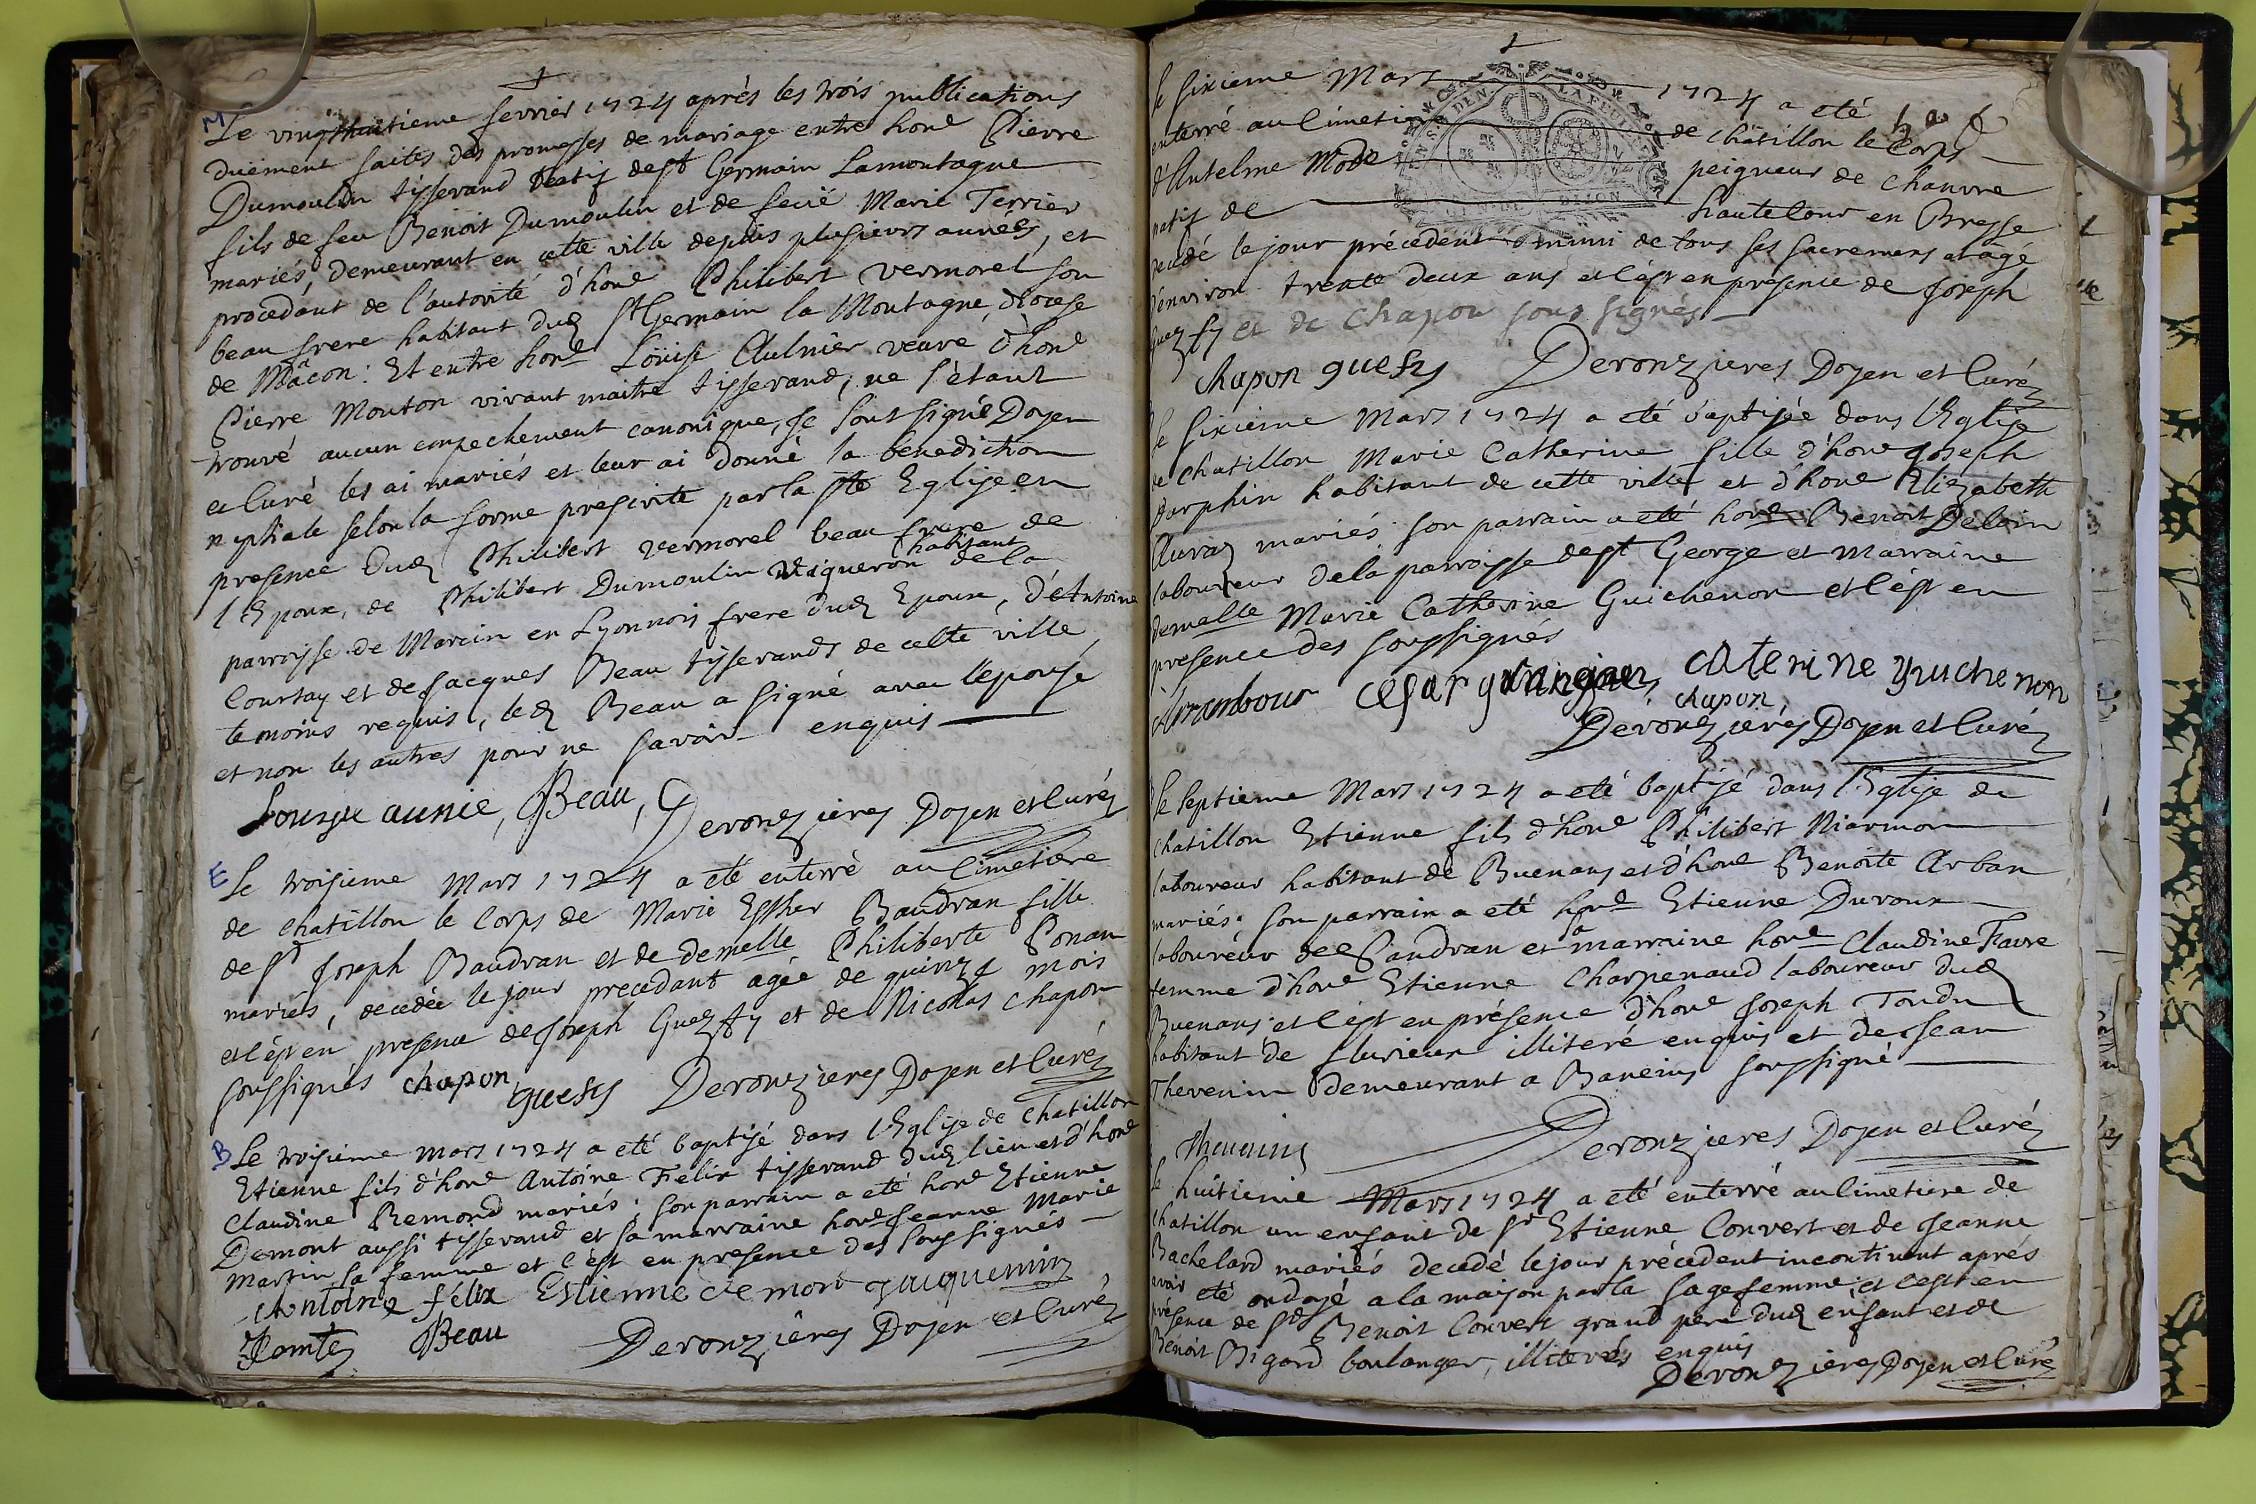 M
Le vingthuitieme fevrier 1724 aprés les trois publications
duëment faites des promesses de mariage entre honê Pierre
Dumoulin tisserand natif de st Germain Lamontagne
fils de feu Benoit Dumoulin et de feüe Marie Terrier
mariés, demeurant en cette ville depuis plusieurs années, et
procedant de l'autorité d'honê Philibert Vermorel son
beau frere habitant dud St Germain la Montagne, diocese
de Mâcon: Et entre honê Loüise Aulnier veuve d'honê
Pierre Mouton vivant maitre tisserand, ne s'étant
trouvé aucun empechement canonique, Je soussigné Doyen
et Curé les ai mariés et leur ai donné la benediction
nuptiale selon la forme prescrite par la ste Eglise en
presence dud Philibert Vermorel beau frere de
l'Epoux, de Philibert Dumoulin vigneron habitant de la
parroisse de Marcin en Lyonnois frere dud Epoux, d'Antoine
Courtay et de Jacques Beau tisserands de cette ville
temoins requis, led Beau a signé avec l'epouse
et non les autres pour ne savoir enquis
Louise aunie, Beau, Deronzieres Doyen et Curé
E
Le troisieme Mars 1724 a eté enterré au Cimetiere
de chatillon le Corps de Marie Esther Baudran fille
de sr Joseph Baudran et de demelle Philiberte Ponan
mariés, decedée le jour precedant agée de quinze mois
et c'est en presence de Joseph Guezfy et de Nicolas Chapon
soussignés chapon guesfy Deronzieres Doyen et Curé
B
Le troisieme mars 1724 a eté baptisé dans l'Eglise de Chatillon
Etienne fils d'honê Antoine Felix tisserand dud lieu et d'honê
Claudine Remond mariés; son parrain a eté honê Etienne
Demont aussi tisserand et sa marraine honê Jeanne Marie
Martin sa femme et c'est en presence des soussignés
Antoine félix Estienne demont Jacquemin
Comte Beau Deronzieres Doyen et Curé
Le sixieme Mars 1724 a eté
enterré au Cimetiere de châtillon le Corps
d'Antelme peigneur de chanvre
natif de hautecour en Bresse
decedé le jour précedent muni de tous ses sacremens et agé
d'environ trente deux ans et c'est en presence de Joseph
Guezfy et de Chapon soussignés
chapon guesfy Deronzieres Doyen et Curé
Le sixieme Mars 1724 a eté baptisée dans l'Eglise
de Chatillon Marie Catherine fille d'honê Joseph
Darphin habitant de cette ville et d'honê Elizabeth
Auraz mariés son parrain a eté honê Benoit Deloin
laboureur de la parroisse de st George et marraine
demelle Marie Catherine Guichenon et c'est en
presence des soussignés
Arrambour Cesar caterine guichenon
chapon
Deronzieres Doyen et Curé
Le septieme Mars 1724 a eté baptisé dans l'Eglise de
chatillon Etienne fils d'honê Philibert Niarmon
laboureur habitant de Buenans et d'honê Benoite Arban
mariés: son parrain a eté honê Etienne Duroux
laboureur de Sandran et sa marraine honê Claudine Favre
femme d'honê Etienne Charpenaud laboureur dud
Buenans et c'est en présence d'honê Joseph Tondu
habitant de flurieux illiteré enquis et de Jean
Thevenin demeurant a Baneins soussigné
Thevenin Deronzieres Doyen et Curé
Le huitieme Mars 1724 a eté enterré au Cimetiere de
chatillon un enfant de sr Etienne Convert et de Jeanne
Bachelard mariés decedé le jour précedent incontinent aprés
avoir eté ondoyé a la maison par la sage femme et c'est en
présence de sr Benoit Convert grand pere dud enfant et de
Benoit Bigard boulanger, illiterés enquis
Deronzieres Doyen et Curé